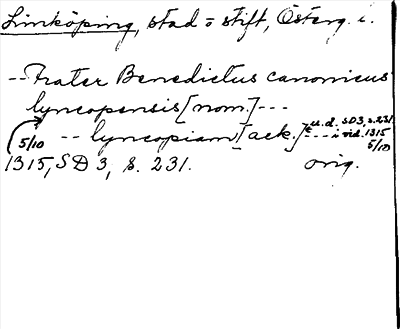 Linköping, stad o stift, Österg. l.
-- Frater Benedictus canonicus
lyncopensis [nom.] ---
5/10 -- lyncopiam [ack.] --- u.d. SD3, s. 231
i vid. 1315
5/10
1315, SD 3, s. 231. orig.